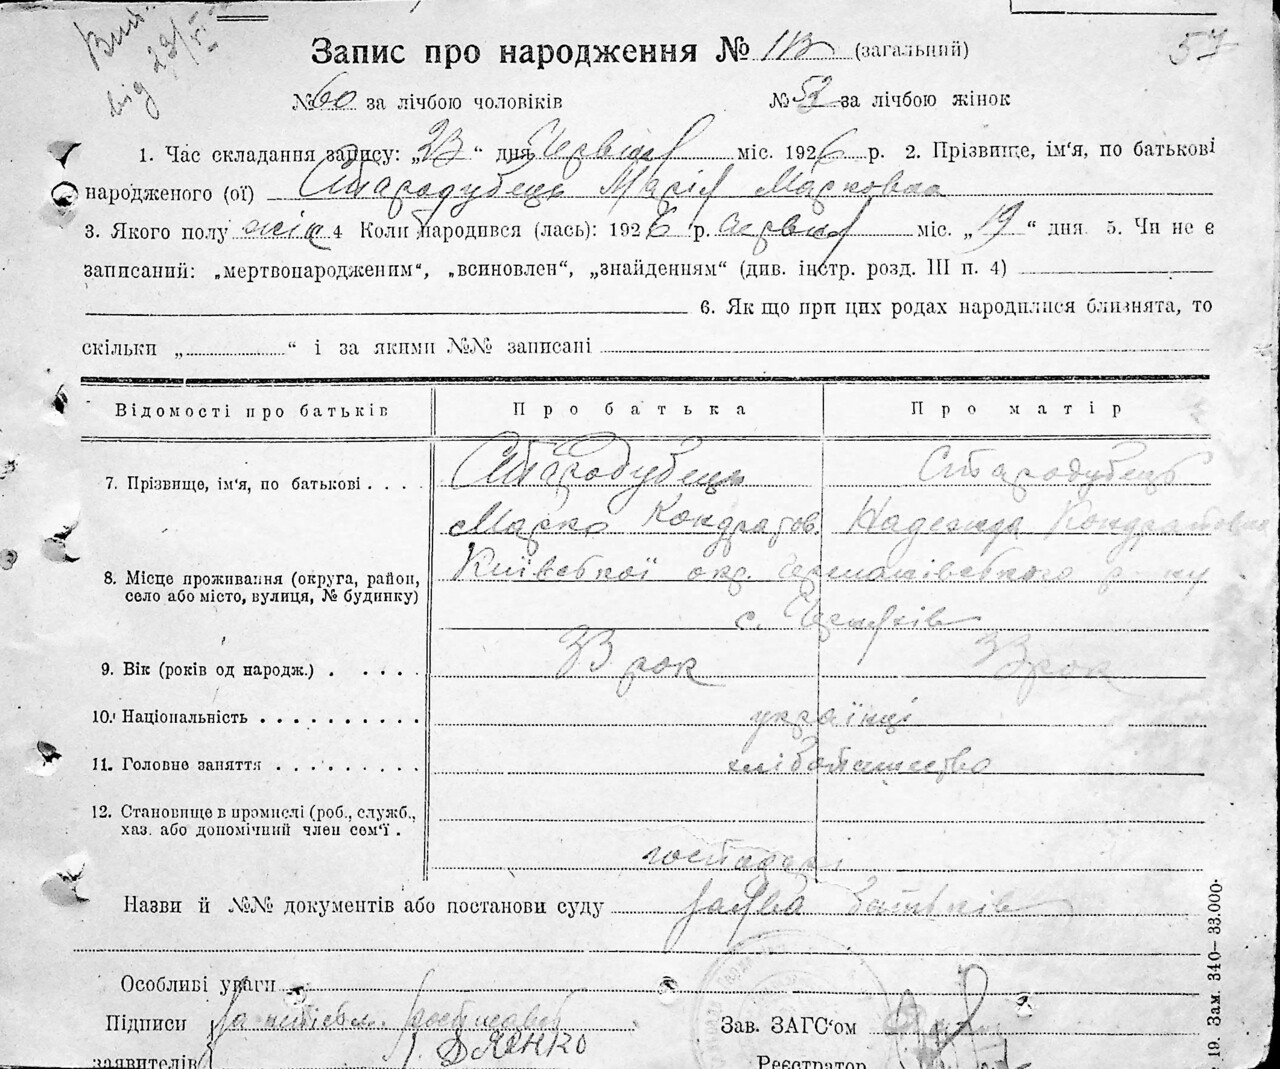 Вид.
від 23/VI
57
Запис про народження № 113 (загальний)
№ 60 за лічбою чоловіків № 53 за лічбою жінок
1. Час складання запису: „23“ дня Червня міс. 1926 р. 2. Прізвище, ім'я, по батькові
народженого (ої) Стародубець Марія Марковна
3. Якого полу жін 4 Коли народився (лась): 1926 р. червня міс. „19“ дня. 5. Чи не є
записаний: „мертвонародженим“, „всиновлен“, „знайденням“ (див. інстр. розд. III п. 4)
6. Як що при цих родах народилися близнята, то
скільки „ “ і за якими №№ записані
Відомості про батьків Про батька Про матір
7. Прізвище, ім'я, по батькові . . . . Стародубець Стародубець
Марко Кондратов. Надежда Кондратовна
8. Місце проживання (округа, район, Київської окр. Германівського р-ну
село або місто, вулиця, № будинку)
с.
9. Вік (років од народж.) . . . . . 33 рок 33 рок
10. Національність . . . . . . . . . . українці
11. Головне заняття . . . . . . . . . хліборобство
12. Становище в промислі (роб., служб.,
хаз. або допомічний член сем'ї .
господарі
Назви й №№ документів або постанови суду заява батьків
Особливі уваги
Підписи Зав. ЗАГС'ом
заявителів Дяченко Реєстратор
19. Зам. 340– 33.000.